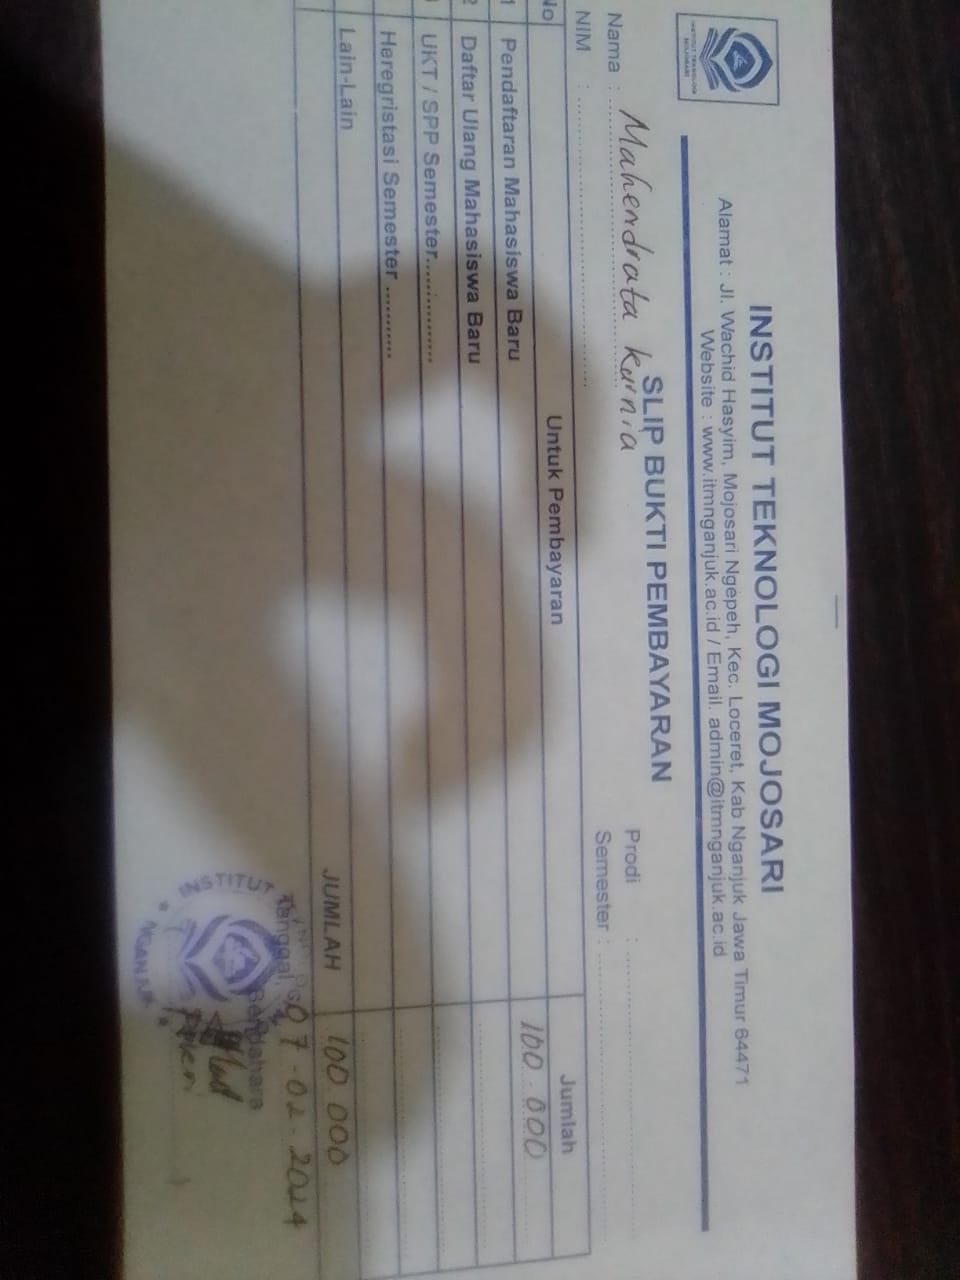 INSTITUT TEKNOLOGI
MOJOSARI
INSTITUT TEKNOLOGI MOJOSARI
Alamat : Jl. Wachid Hasyim, Mojosari Ngepeh, Kec. Loceret, Kab Nganjuk Jawa Timur 64471
Website : www.itmnganjuk.ac.id / Email. admin@itmnganjuk.ac.id
SLIP BUKTI PEMBAYARAN
Nama : Mahendrata Kurnia
Prodi :
NIM :
Semester :
No Untuk Pembayaran Jumlah
1 Pendaftaran Mahasiswa Baru 100.000
2 Daftar Ulang Mahasiswa Baru
UKT / SPP Semester...............
Heregristasi Semester ...........
Lain-Lain
JUMLAH 100 000
Tanggal, 07-02-2024
Bendahara
INSTITUT
NGANJUK